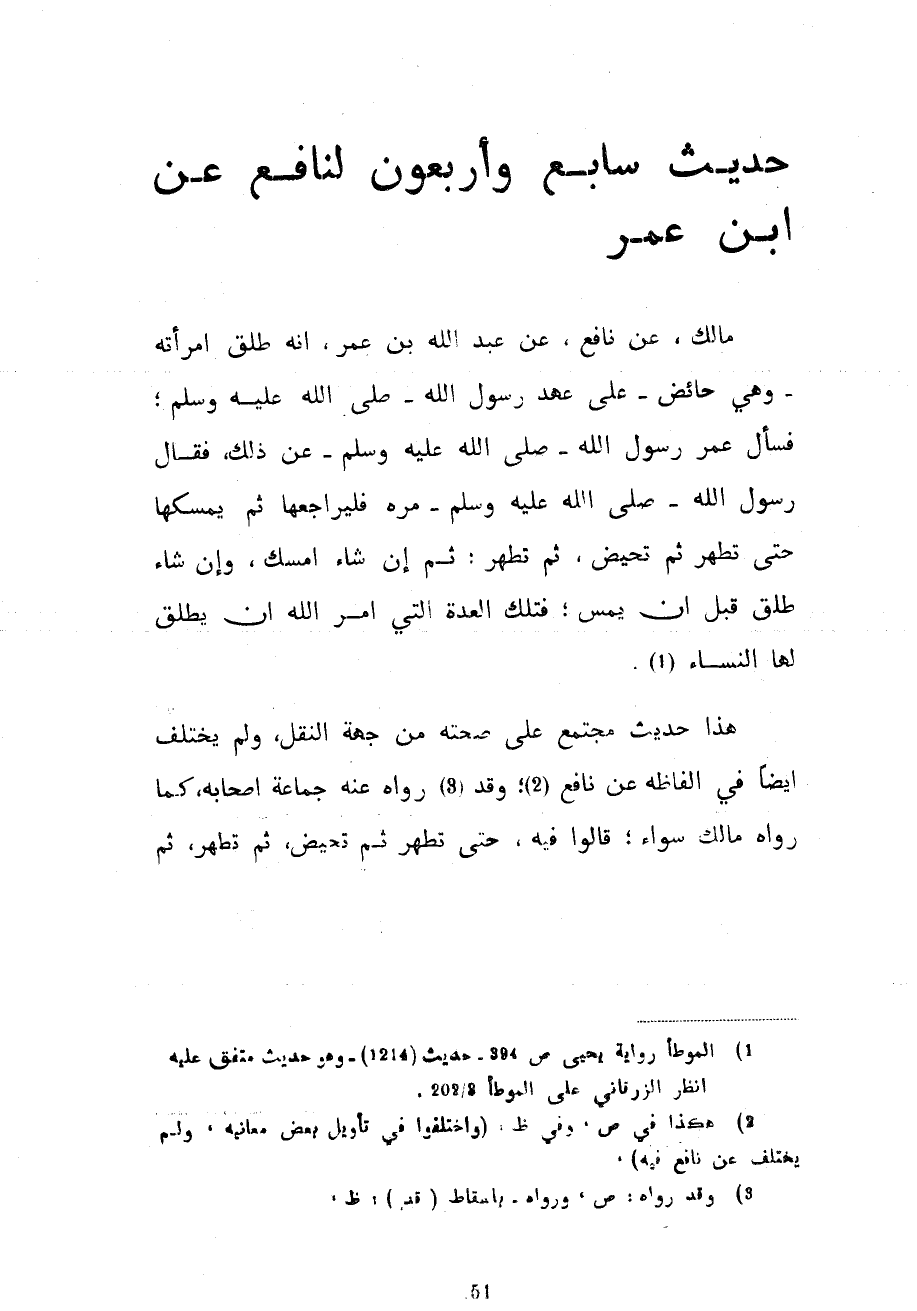 حديث سابع وأربعون لنافع عن
ابن عمر
مالك ، عن نافع ، عن عبد الله بن عمر ، انه طلق امرأته
ـ وهي حائض ـ على عهد رسول الله ـ صلى الله عليه وسلم ؛
فسأل عمر رسول الله ـ صلى الله عليه وسلم ـ عن ذلك، فقال
رسول الله ـ صلى الله عليه وسلم ـ مره فليراجعها ثم يمسكها
حتى تطهر ثم تحيض ، ثم تطهر : ثم إن شاء امسك ، وإن شاء
طلق قبل ان يمس ؛ فتلك العدة التي امر الله ان يطلق
لها النساء (1) .
هذا حديث مجتمع على صحته من جهة النقل، ولم يختلف
ايضاً في الفاظه عن نافع (2)؛ وقد (3) رواه عنه جماعة اصحابه، كما
رواه مالك سواء ؛ قالوا فيه ، حتى تطهر ثم تحيض، ثم تطهر، ثم
1) الموطأ رواية يحيى ص 394 ـ حديث (1214) ـ وهو حديث متفق عليه
انظر الزرقاني على الموطأ 202/3 .
2) هكذا في ص ، وفي ظ : (واختلفوا في تأويل بعض معانيه ، ولم
يختلف عن نافع فيه) ،
3) وقد رواه : ص ، ورواه ـ باسقاط ( قد ) : ظ ،
51